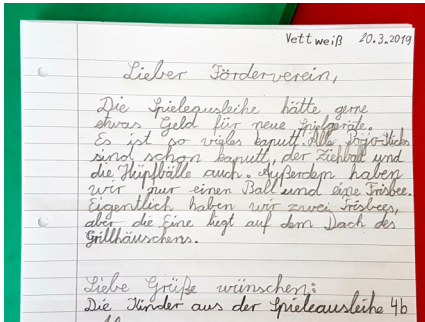 Vettweiß 20.3.2019
Lieber Förderverein,
Die Spieleausleihe hätte gerne
etwas Geld für neue Spielgeräte.
Es ist so vieles kaputt. Alle Pogo-Sticks
sind schon kaputt, der Ziehball und
die Hüpfbälle auch. Außerdem haben
wir nur einen Ball und eine Frisbee.
Eigentlich haben wir zwei Frisbees,
aber die Eine liegt auf dem Dach des
Grillhäuschens.
Liebe Grüße wünschen:
Die Kinder aus der Spieleausleihe 4b